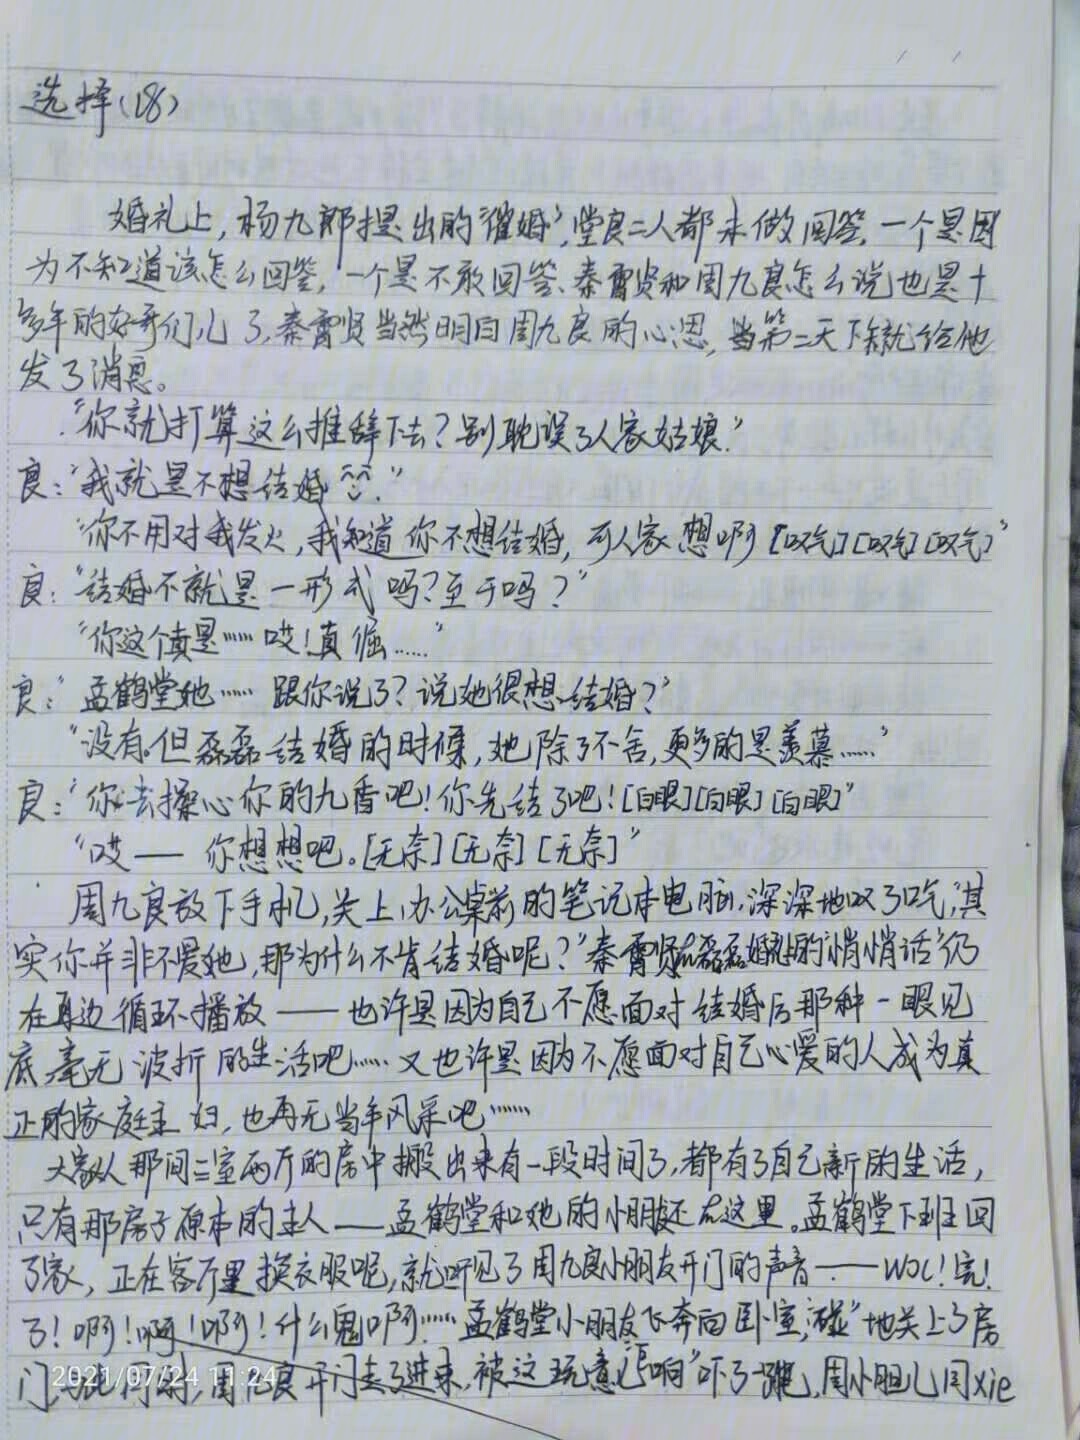 选择(18)
婚礼上,杨九郎提出的“催婚”,堂良二人都未做回答,一个是因
为不知道该怎么回答,一个是不敢回答、秦霄贤和周九良怎么说也是十
多年的好哥们儿了,秦霄贤当然明白周九良的心思,当第二天下午就给他
发了消息。
“你就打算这么推辞下去?别耽误了人家姑娘.”
良:“我就是不想结婚^^.”
“你不用对我发火,我知道你不想结婚,可人家想啊[叹气][叹气][叹气]”
良:“结婚不就是一形式吗?至于吗?”
“你这个真是……哎!真倔……”
良:“孟鹤堂她……跟你说了?说她很想结婚?”
“没有.但磊磊结婚的时候,她除了不舍,更多的是羡慕……”
良:“你去操心你的九香吧!你先结了吧![白眼][白眼][白眼]”
“哎——你想想吧。[无奈][无奈][无奈]”
周九良放下手机,关上办公桌前的笔记本电脑,深深地叹了口气,“其
实你并非不爱她,那为什么不肯结婚呢?”秦霄贤在磊磊婚礼上的“悄悄话”仍
在耳边循环播放——也许是因为自己不愿面对结婚后那种一眼见
底毫无波折的生活吧……又也许是因为不愿面对自己心爱的人成为真
正的家庭主妇,也再无当年风采吧……
大家从那间三室两厅的房中搬出来有一段时间了,都有了自己新的生活,
只有那房子原本的主人——孟鹤堂和她的小朋友还在这里。孟鹤堂下班回
了家,正在客厅里换衣服呢,就听见了周九良小朋友开门的声音——WOC!完!
了!啊!啊!啊!什么鬼啊……孟鹤堂小朋友飞奔向卧室,“碰”地关上了房
门,与此同时,周九良开门走了进来,被这玩意“巨响”吓了一跳,周小胆儿同xie
2021/07/24 11:24